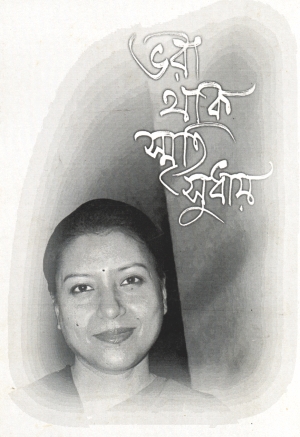 ভরা
থাক
স্মৃতি
সুধায়